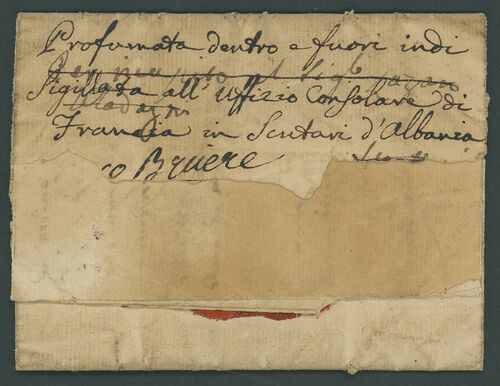 Profumata dentro e fuori indi
Sigillata all' Uffizio Consolare di
Francia in Scutari d'Albania
Bruere